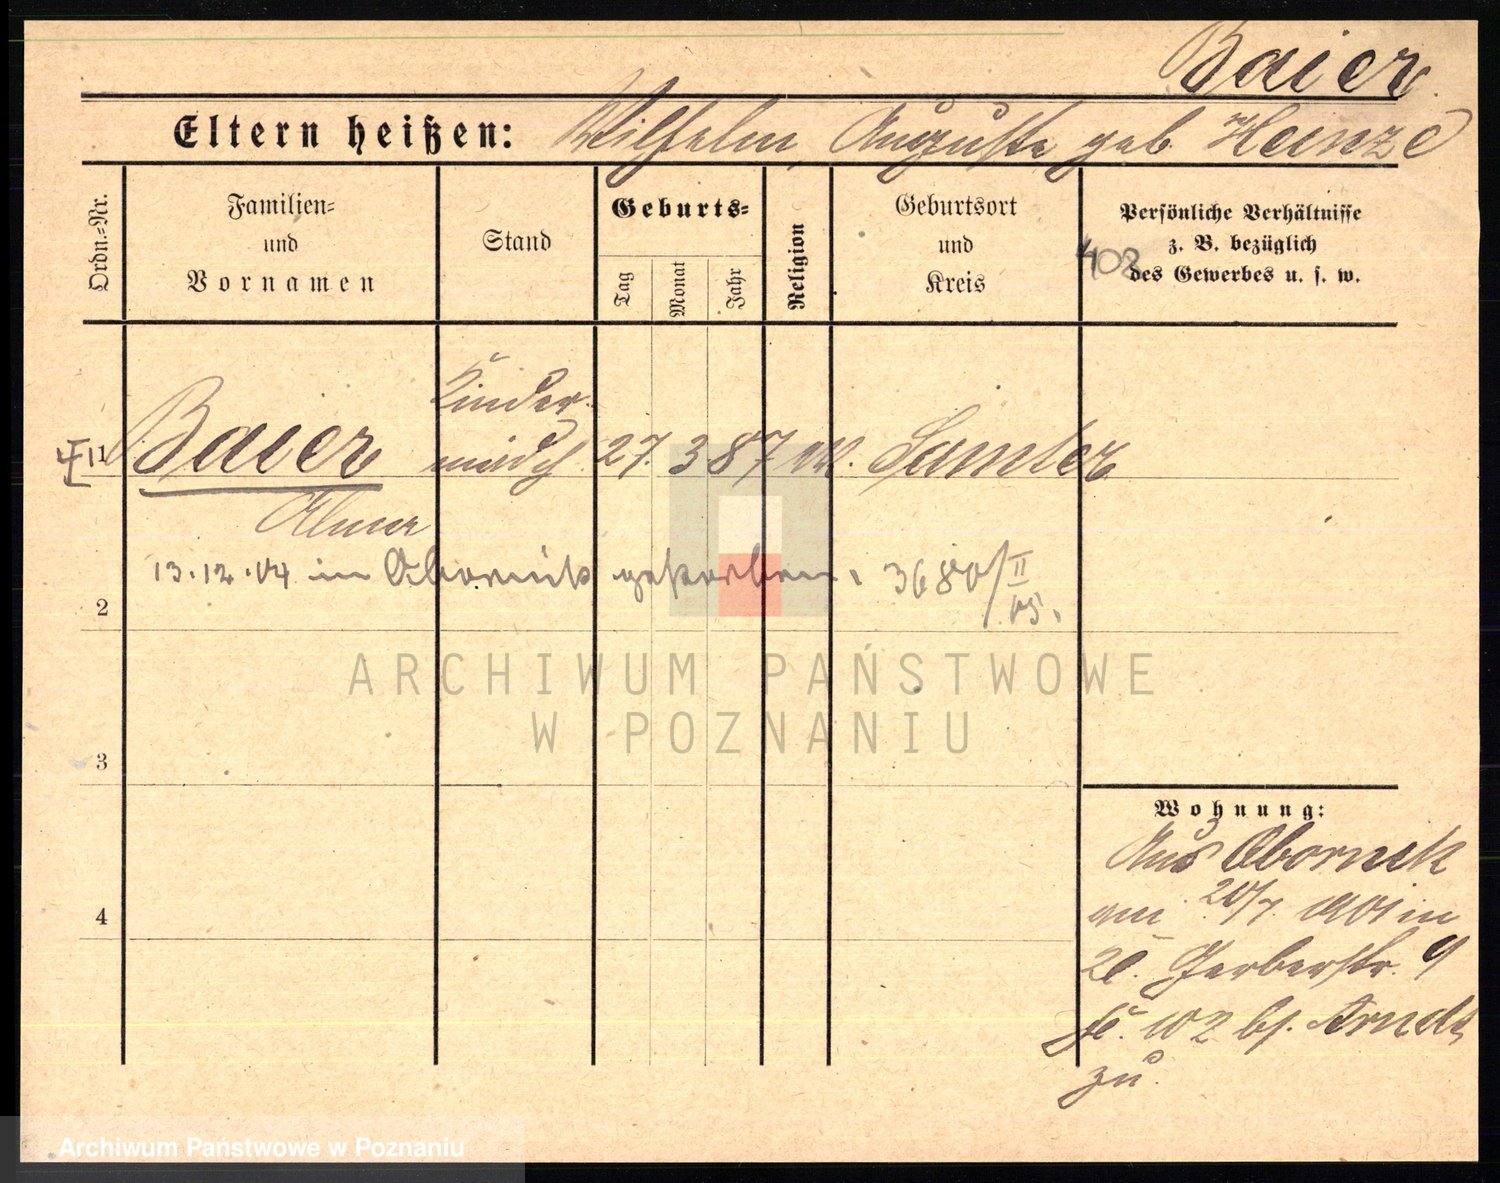 Baier
Eltern heißen: Wilhelm, Auguste geb. Heinze
Ordn.-Nr.
Familien-
und
Vornamen
Stand
Geburts-
Tag
Monat
Jahr
Religion
Geburtsort
und
Kreis
Persönliche Verhältnisse
z. B. bezüglich
des Gewerbes u. s. w.
402
Kinder-
1 Baier mädch. 27. 3 87 Samter
13.12.04 in Obornik gestorben. 3680/II 05.
2
ARCHIWUM PAŃSTWOWE
W POZNANIU
3
4
Wohnung:
Aus Obornik
am 20/7. 1901 in
Gerberstr. 9
bj. Arndt
zu.
Archiwum Państwowe w Poznaniu